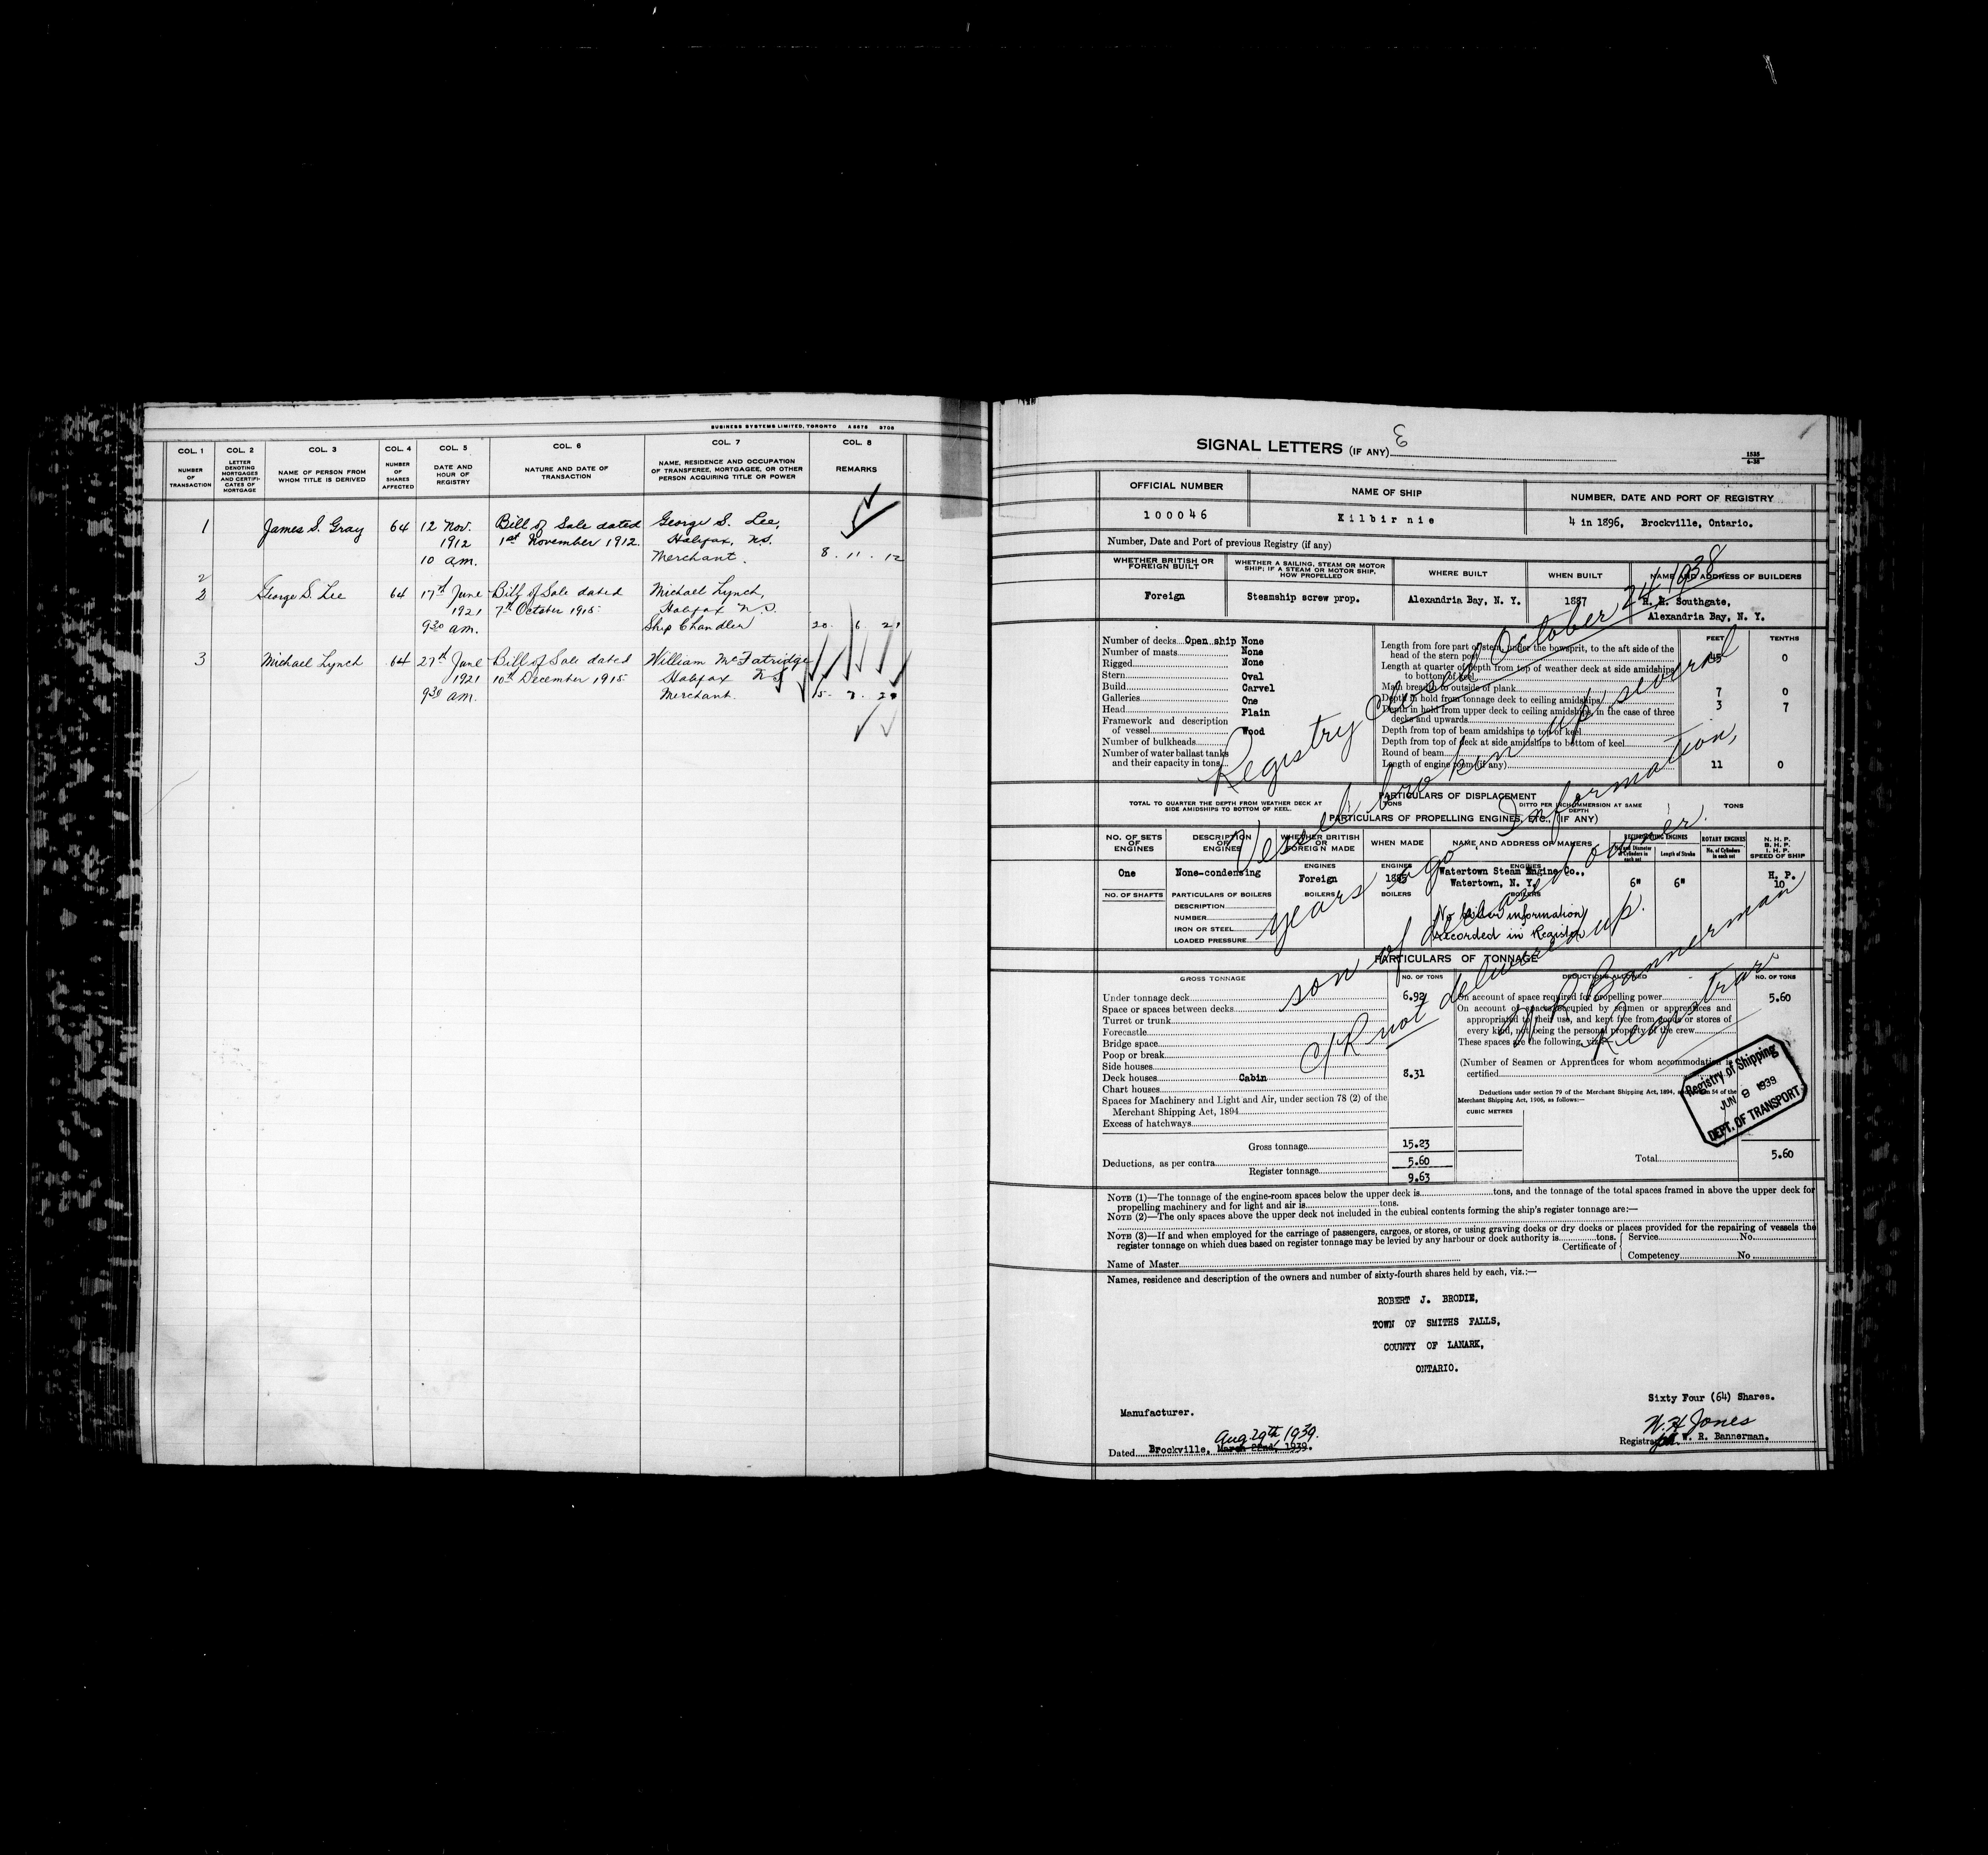 BUSINESS SYSTEMS LIMITED, TORONTO
COL. 1 COL. 2 COL. 3 COL. 4 COL. 5 COL. 6 COL. 7 COL. 8
NUMBER OF TRANSACTION
LETTER DENOTING MORTGAGES AND CERTIFICATES OF MORTGAGE
NAME OF PERSON FROM WHOM TITLE IS DERIVED
NUMBER OF SHARES AFFECTED
DATE AND HOUR OF REGISTRY
NATURE AND DATE OF TRANSACTION
NAME, RESIDENCE AND OCCUPATION OF TRANSFEREE, MORTGAGEE, OR OTHER PERSON ACQUIRING TITLE OR POWER
REMARKS
1 James S. Gray 64 12 Nov. Bill of Sale dated George S. Lee,
1912 1st November 1912. Halifax, N.S.
10 am. Merchant. 8. 11. 12
2
2 George S. Lee 64 17th June Bill of Sale dated Michael Lynch,
1921 7th October 1915. Halifax N.S.
9 30 am. Ship Chandler 20. 6. 21
3 Michael Lynch 64 27th June Bill of Sale dated William McFatridge
1921 10th December 1915. Halifax N.S.
9 30 am. Merchant.
SIGNAL LETTERS (IF ANY)
OFFICIAL NUMBER NAME OF SHIP NUMBER, DATE AND PORT OF REGISTRY
100046 Kilbirnie 4 in 1896, Brockville, Ontario.
Number, Date and Port of previous Registry (if any)
WHETHER BRITISH OR FOREIGN BUILT
WHETHER A SAILING, STEAM OR MOTOR SHIP; IF A STEAM OR MOTOR SHIP, HOW PROPELLED
WHERE BUILT WHEN BUILT NAME AND ADDRESS OF BUILDERS
Foreign Steamship screw prop. Alexandria Bay, N. Y. 1887 H. R. Southgate,
Alexandria Bay, N. Y.
Number of decks Open ship None
Number of masts None
Rigged None
Stern Oval
Build Carvel
Galleries One
Head Plain
Framework and description of vessel Wood
Number of bulkheads
Number of water ballast tanks and their capacity in tons
FEET TENTHS
Length from fore part of stem, under the bowsprit, to the aft side of the head of the stern post 45 0
Length at quarter of depth from top of weather deck at side amidships to bottom of keel
Main breadth to outside of plank 7 0
Depth in hold from tonnage deck to ceiling amidships 3 7
Depth in hold from upper deck to ceiling amidships, in the case of three decks and upwards
Depth from top of beam amidships to top of keel
Depth from top of deck at side amidships to bottom of keel
Round of beam
Length of engine room (if any) 11 0
Registry closed October 24, 1938
Vessel broken up several
years ago. Information,
son of deceased owner.
C/R not delivered up.
W R Bannerman
Registrar
PARTICULARS OF DISPLACEMENT
TOTAL TO QUARTER THE DEPTH FROM WEATHER DECK AT SIDE AMIDSHIPS TO BOTTOM OF KEEL. TONS DITTO PER INCH IMMERSION AT SAME DEPTH TONS
PARTICULARS OF PROPELLING ENGINES, ETC., (IF ANY)
NO. OF SETS OF ENGINES
DESCRIPTION OF ENGINES
WHETHER BRITISH OR FOREIGN MADE
WHEN MADE
NAME AND ADDRESS OF MAKERS
RECIPROCATING ENGINES
Length of Stroke
ROTARY ENGINES
No. of Cylinders in each set
N. H. P. B. H. P. I. H. P. SPEED OF SHIP
ENGINES ENGINES ENGINES
One None-condensing Foreign Watertown Steam Engine Co., 6" 6" H. P.
Watertown, N. Y. 10
NO. OF SHAFTS PARTICULARS OF BOILERS BOILERS BOILERS BOILERS
DESCRIPTION
NUMBER No boiler information
IRON OR STEEL recorded in Register
LOADED PRESSURE
PARTICULARS OF TONNAGE
GROSS TONNAGE NO. OF TONS DEDUCTIONS ALLOWED NO. OF TONS
Under tonnage deck 6.92
Space or spaces between decks
Turret or trunk
Forecastle
Bridge space
Poop or break
Side houses
Deck houses Cabin 8.31
Chart houses
Spaces for Machinery and Light and Air, under section 78 (2) of the
Merchant Shipping Act, 1894
Excess of hatchways
Gross tonnage 15.23
Deductions, as per contra 5.60
Register tonnage 9.63
On account of space required for propelling power 5.60
On account of spaces occupied by seamen or apprentices and
appropriated to their use, and kept free from goods or stores of
every kind, not being the personal property of the crew
These spaces are the following, viz.:—
(Number of Seamen or Apprentices for whom accommodation is
certified
Deductions under section 79 of the Merchant Shipping Act, 1894, and section 54 of the
Merchant Shipping Act, 1906, as follows:—
CUBIC METRES
Total 5.60
Registry of Shipping
JUN 8 1939
DEPT. OF TRANSPORT
NOTE (1)—The tonnage of the engine-room spaces below the upper deck is tons, and the tonnage of the total spaces framed in above the upper deck for
propelling machinery and for light and air is tons.
NOTE (2)—The only spaces above the upper deck not included in the cubical contents forming the ship's register tonnage are:—
NOTE (3)—If and when employed for the carriage of passengers, cargoes, or stores, or using graving docks or dry docks or places provided for the repairing of vessels the
register tonnage on which dues based on register tonnage may be levied by any harbour or dock authority is tons.
Certificate of Service No.
Competency No
Name of Master
Names, residence and description of the owners and number of sixty-fourth shares held by each, viz.:—
ROBERT J. BRODIE,
TOWN OF SMITHS FALLS,
COUNTY OF LANARK,
ONTARIO.
Sixty Four (64) Shares.
Manufacturer.
Aug. 29th 1939. N. H. Jones
Dated Brockville, March 22nd, 1939. Registrar W. R. Bannerman.